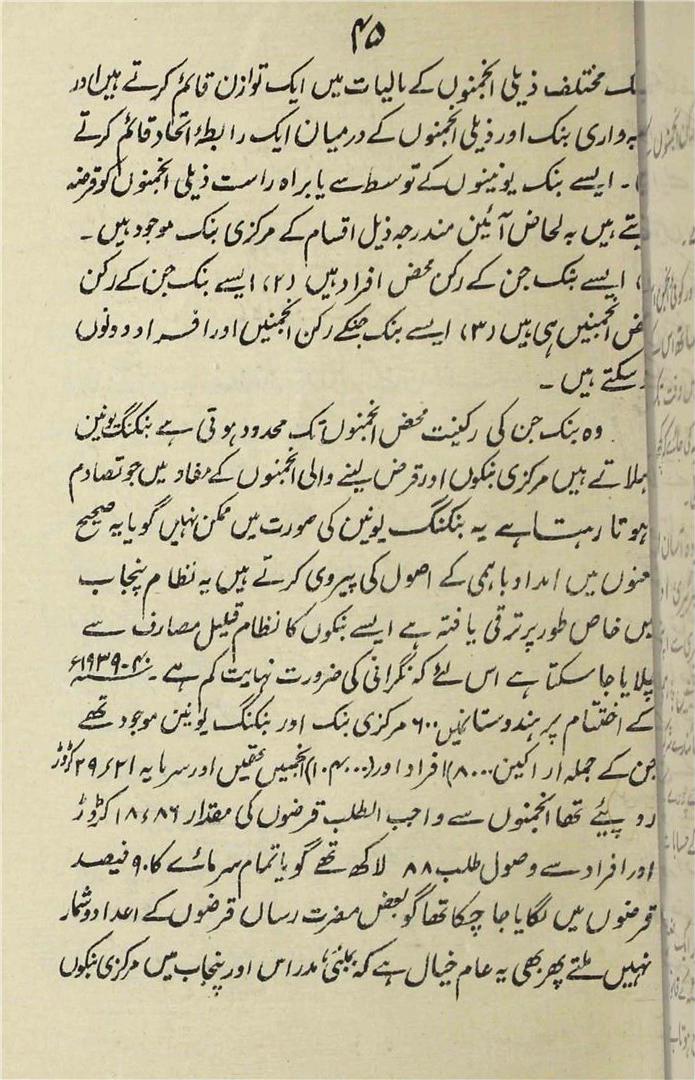 ۴۵
مختلف ذیلی انجمنوں کے مالیات میں ایک توازن قائم کرتے ہیں اور
بنک اور ذیلی انجمنوں کے درمیان ایک رابطۂ اتحاد قائم کرتے
۔ ایسے بنک یونینوں کے توسط سے یا براہ راست ذیلی انجمنوں کو قرضہ
ہیں بہ لحاض آئین مندرجہ ذیل اقسام کے مرکزی بنک موجود ہیں ۔
ایسے بنک جن کے رکن محض افراد ہیں (۲) ایسے بنک جن کے رکن
انجمنیں ہی ہیں (۳) ایسے بنک جنکے رکن انجمنیں اور افراد دونوں
سکتے ہیں ۔
وہ بنک جن کی رکنیت محض انجمنوں تک محدود ہوتی ہے بنکنگ یونین
ہیں مرکزی بنکوں اور قرض لینے والی انجمنوں کے مفاد میں جو تصادم
ہوتا رہتا ہے یہ بنکنگ یونین کی صورت میں ممکن نہیں گویا یہ صحیح
معنوں میں امداد باہمی کے اصول کی پیروی کرتے ہیں یہ نظام پنجاب
میں خاص طور پر ترقی یافتہ ہے ایسے بنکوں کا نظام قلیل مصارف سے
چلایا جا سکتا ہے اس لئے کہ نگرانی کی ضرورت نہایت کم ہے ۔ ۴۰-۱۹۳۹ء
کے اختتام پر ہندوستانمیں ۶۰۰ مرکزی بنک اور بنکنگ یونین موجود تھے
جن کے جملہ اراکین (۸۰۰۰۰) افراد اور (۱۰۴۰۰۰) انجمنیں تھیں اور سرمایہ ۲۹٫۲۱ کڑوڑ
روپیئے تھا انجمنوں سے واجب الطلب قرضوں کی مقدار ۱۸٫۸۶ کڑوڑ
اور افراد سے وصول طلب ۸۸ لاکھ تھے گویا تمام سرمائے کا ۹۰ فیصد
قرضوں میں لگایا جا چکا تھا گو بعض مضرت رساں قرضوں کے اعداد و شمار
نہیں ملتے پھر بھی یہ عام خیال ہے کہ بمبئی، مدراس اور پنجاب میں مرکزی بنکوں